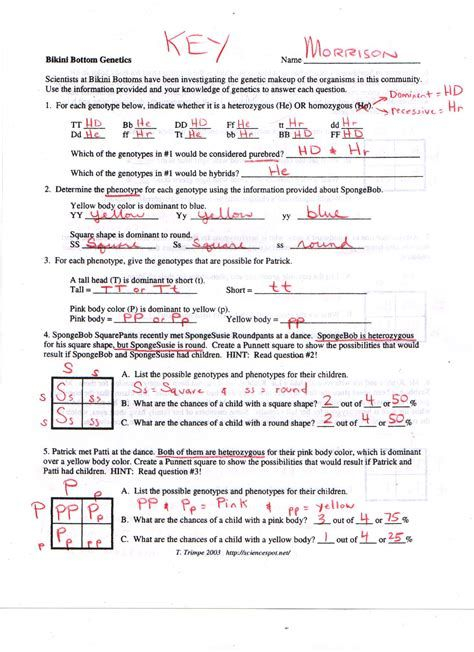 KEY
Bikini Bottom Genetics Name MORRISON
Scientists at Bikini Bottoms have been investigating the genetic makeup of the organisms in this community.
Use the information provided and your knowledge of genetics to answer each question.
Dominant = HD
recessive = Hr
1. For each genotype below, indicate whether it is a heterozygous (He) OR homozygous (Ho).
TT HD Bb He DD HD Ff He tt Hr dd Hr
Dd He ff Hr Tt He bb Hr BB HD FF HD
Which of the genotypes in #1 would be considered purebred? HD & Hr
Which of the genotypes in #1 would be hybrids? He
2. Determine the phenotype for each genotype using the information provided about SpongeBob.
Yellow body color is dominant to blue.
YY yellow Yy yellow yy blue
Square shape is dominant to round.
SS Square Ss Square ss round
3. For each phenotype, give the genotypes that are possible for Patrick.
A tall head (T) is dominant to short (t).
Tall = TT or Tt Short = tt
Pink body color (P) is dominant to yellow (p).
Pink body = PP or Pp Yellow body = pp
4. SpongeBob SquarePants recently met SpongeSusie Roundpants at a dance. SpongeBob is heterozygous
for his square shape, but SpongeSusie is round. Create a Punnett square to show the possibilities that would
result if SpongeBob and SpongeSusie had children. HINT: Read question #2!
S s
A. List the possible genotypes and phenotypes for their children.
s Ss ss
Ss = Square & ss = round
B. What are the chances of a child with a square shape? 2 out of 4 or 50 %
s Ss ss
C. What are the chances of a child with a round shape? 2 out of 4 or 50 %
5. Patrick met Patti at the dance. Both of them are heterozygous for their pink body color, which is dominant
over a yellow body color. Create a Punnett square to show the possibilities that would result if Patrick and
Patti had children. HINT: Read question #3!
P p
A. List the possible genotypes and phenotypes for their children.
P PP Pp
PP & Pp = Pink & pp = yellow
B. What are the chances of a child with a pink body? 3 out of 4 or 75 %
p Pp pp
C. What are the chances of a child with a yellow body? 1 out of 4 or 25 %
T. Trimpe 2003 http://sciencespot.net/